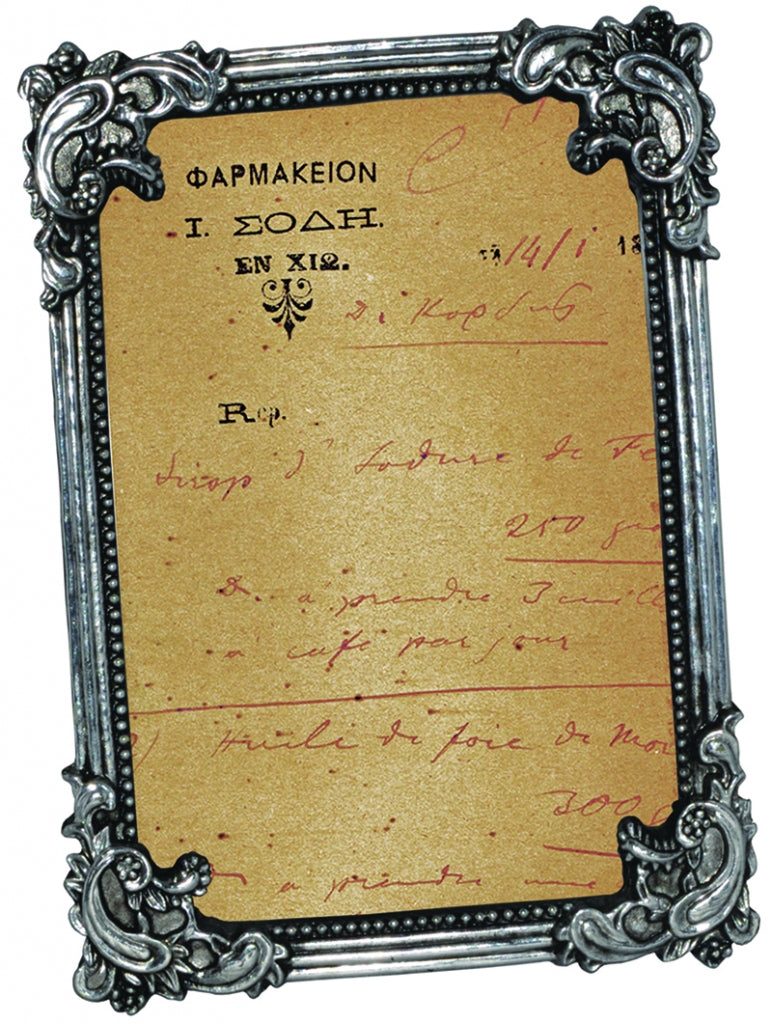 ΦΑΡΜΑΚΕΙΟΝ
Ι. ΣΟΔΗ.
ΕΝ ΧΙΩ.
τῇ 14/1 18
Δ. Κορδης
Rep.
Sirop d' Iodure de Fe
250 gr
D. a prendre 3 cuill
a café par jour
2) Huile de foie de Mor
300 g
D. a prendre une